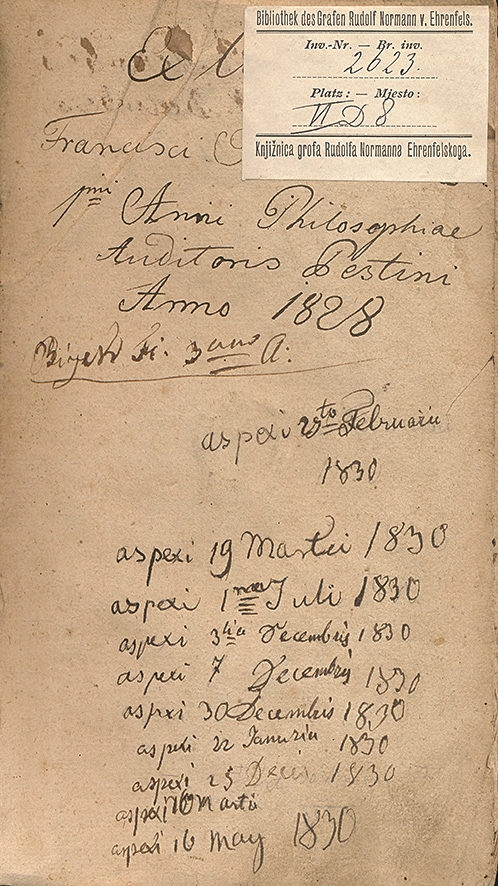 Bibliothek des Grafen Rudolf Normann v. Ehrenfels.
Inv.-Nr. — Br. inv.
2623.
Platz: — Mjesto:
VI D 8
Knjižnica grofa Rudolfa Normanna Ehrenfelskoga.
Ex
Francisci
1mi Anni Philosophiae
Auditoris Pestini
Anno 1828
3 A:
aspexi Februariu
1830
aspexi 19 Martii 1830
aspexi 1 Juli 1830
aspexi 3tia Decembris 1830
aspexi 7 Decembris 1830
aspexi 30 Decembris 1830
aspexi 22 Januariu 1830
aspexi 25 1830
aspexi Martii
aspexi 16 May 1830